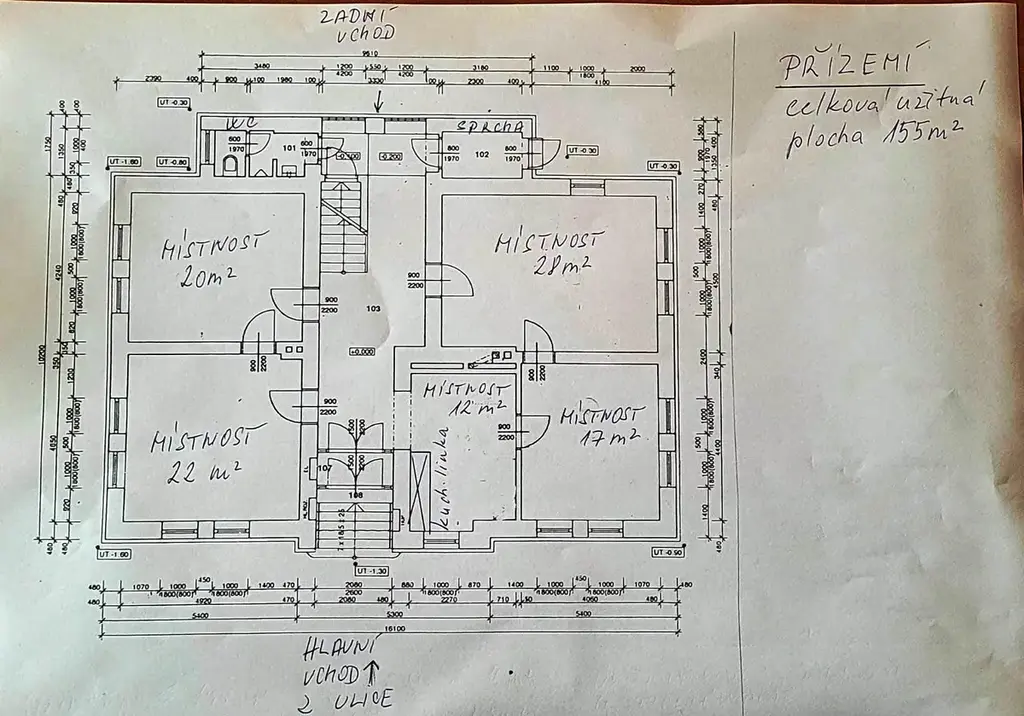 ZADNÍ
VCHOD
9610
3480
1200
550
1200
3180
4200
3330
4200
2390
400
900
100
1980
100
100
2300
400
1100
1000
2000
1800
4100
UT -0.30
WC
SPRCHA
600
1970
101
600
1970
-0.200
600
1970
102
600
1970
UT -0.30
UT -1.60
UT -0.80
UT -0.30
MÍSTNOST
20m²
MÍSTNOST
28m²
900
2200
900
2200
103
±0.000
900
2200
900
2200
900
2200
MÍSTNOST
12 m²
MÍSTNOST
17 m²
900
2200
MÍSTNOST
22 m²
kuch. linka
107
106
UT -1.60
UT -1.30
UT -0.90
480
1070
1000
450
1000
1400
470
2080
880
1000
870
1400
1000
450
1000
1070
480
1800(800)
1800(800)
2600
1800(800)
1800(800)
1800(800)
480
4920
470
2080
480
2270
710
4060
480
5400
5300
5400
16100
10200
HLAVNÍ
VCHOD ↑
Z ULICE
PŘÍZEMÍ
celková užitná
plocha 155m²